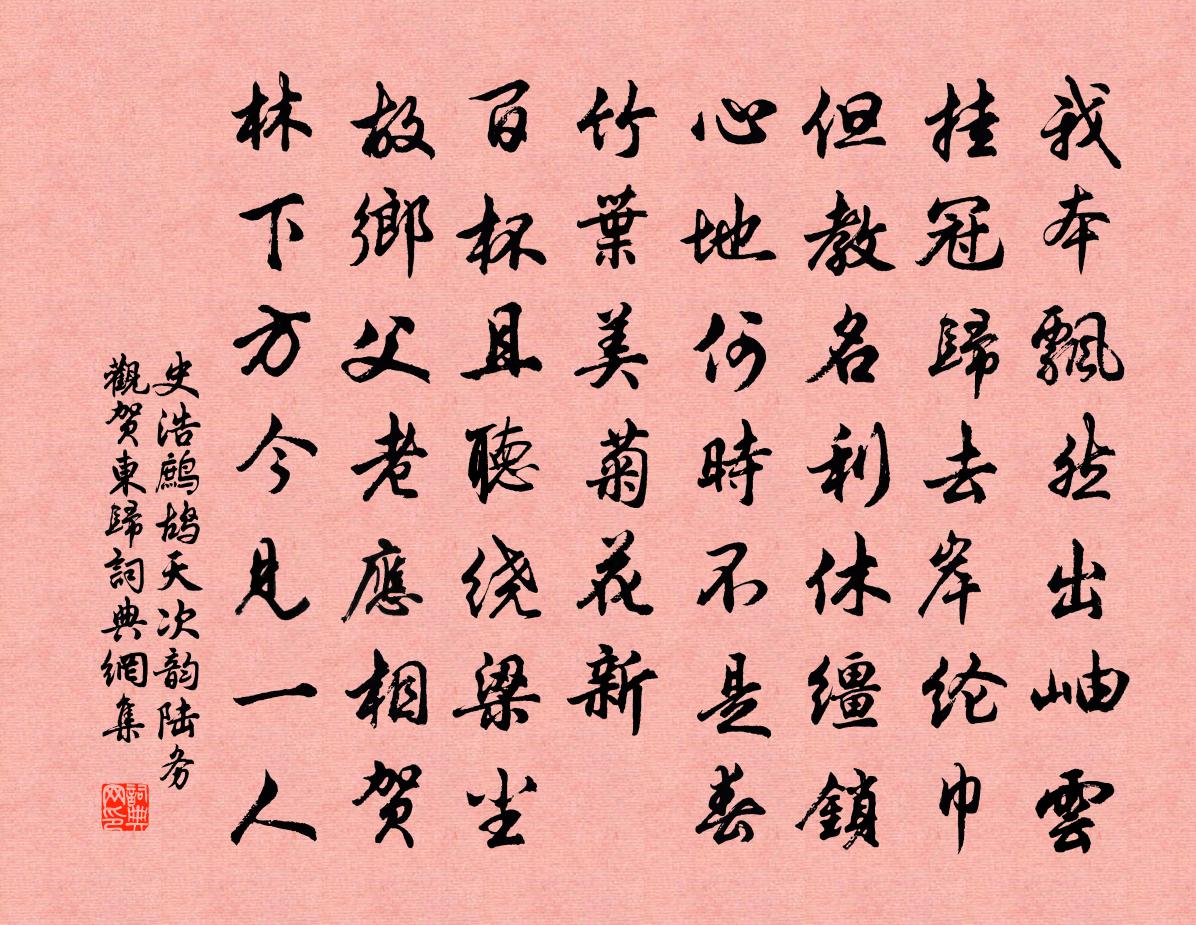 我本飄然出岫雲
挂冠歸去岸纶巾
但教名利休繮鎖
心地何時不是春
竹葉美菊花新
百杯且聽绕梁尘
故鄉父老應相贺
林下方今見一人
史浩鷓鸪天次韵陆务
觀贺東歸詞典網集
詞典网印